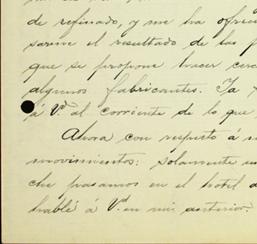 de refinado, y me ha ofrec
sarme el resultado de las
que se propone hacer cerc
algunos fabricantes. Ya
á Vd. al corriente de lo que
Ahora con respecto á m
movimientos: solamente un
che pasamos en el hotel d
hablé á Vd. en mi anterior.